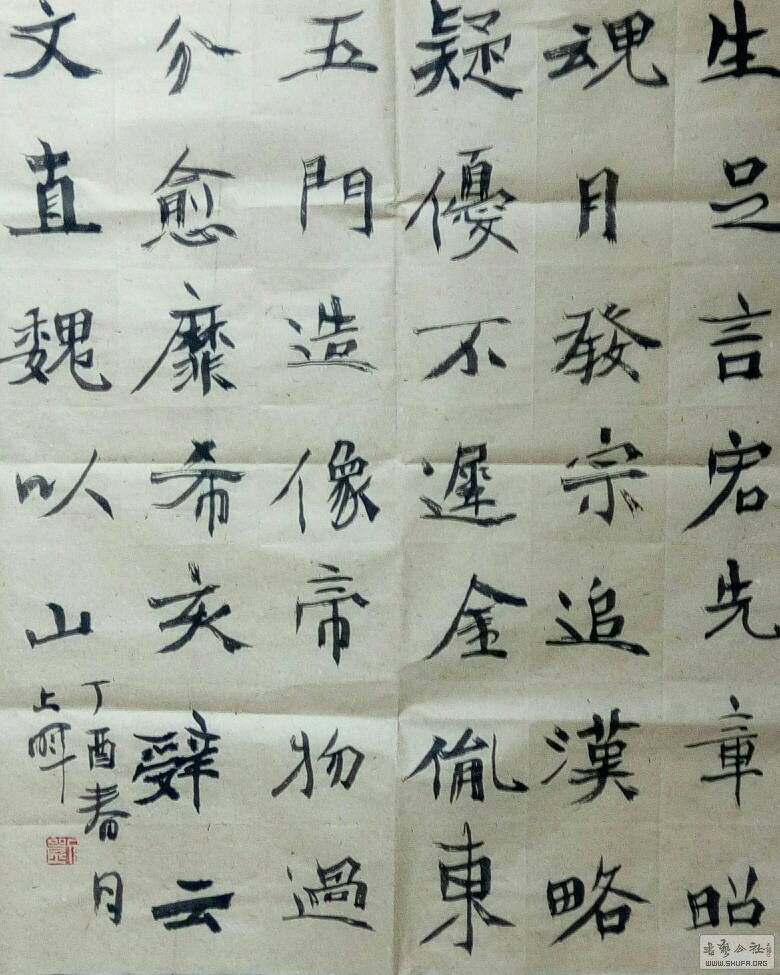 生足言宕先章昭
魂月發宗追漢略
疑優不遲金胤東
五門造像帝物過
分愈靡希亥辤云
文直魏以山
丁酉春月
上
书艺公社
WWW.SHUFA.ORG